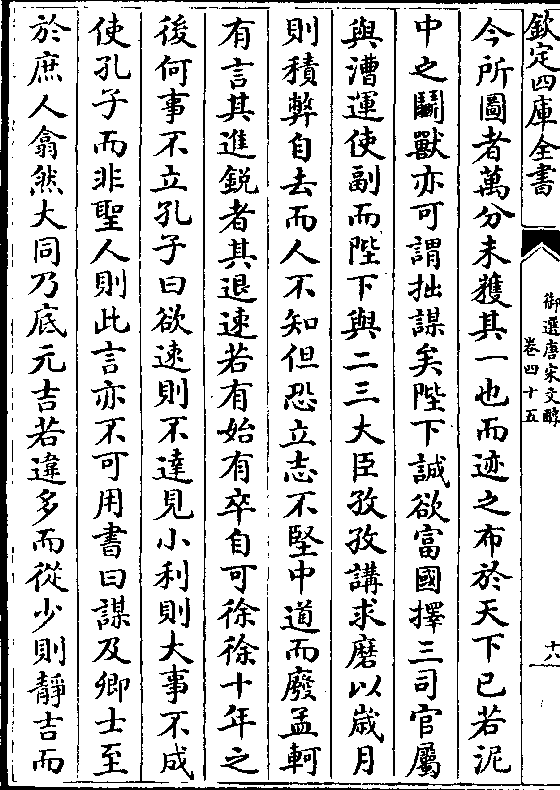 欽定四庫全書
御選唐宋文醇
卷四十五
十八
今所圖者萬分未獲其一也而迹之布於天下已若泥
中之鬭獸亦可謂拙謀矣陛下誠欲富國擇三司官屬
與漕運使副而陛下與二三大臣孜孜講求磨以歲月
則積弊自去而人不知但恐立志不堅中道而廢孟軻
有言其進銳者其退速若有始有卒自可徐徐十年之
後何事不立孔子曰欲速則不達見小利則大事不成
使孔子而非聖人則此言亦不可用書曰謀及卿士至
於庶人翕然大同乃底元吉若違多而從少則靜吉而